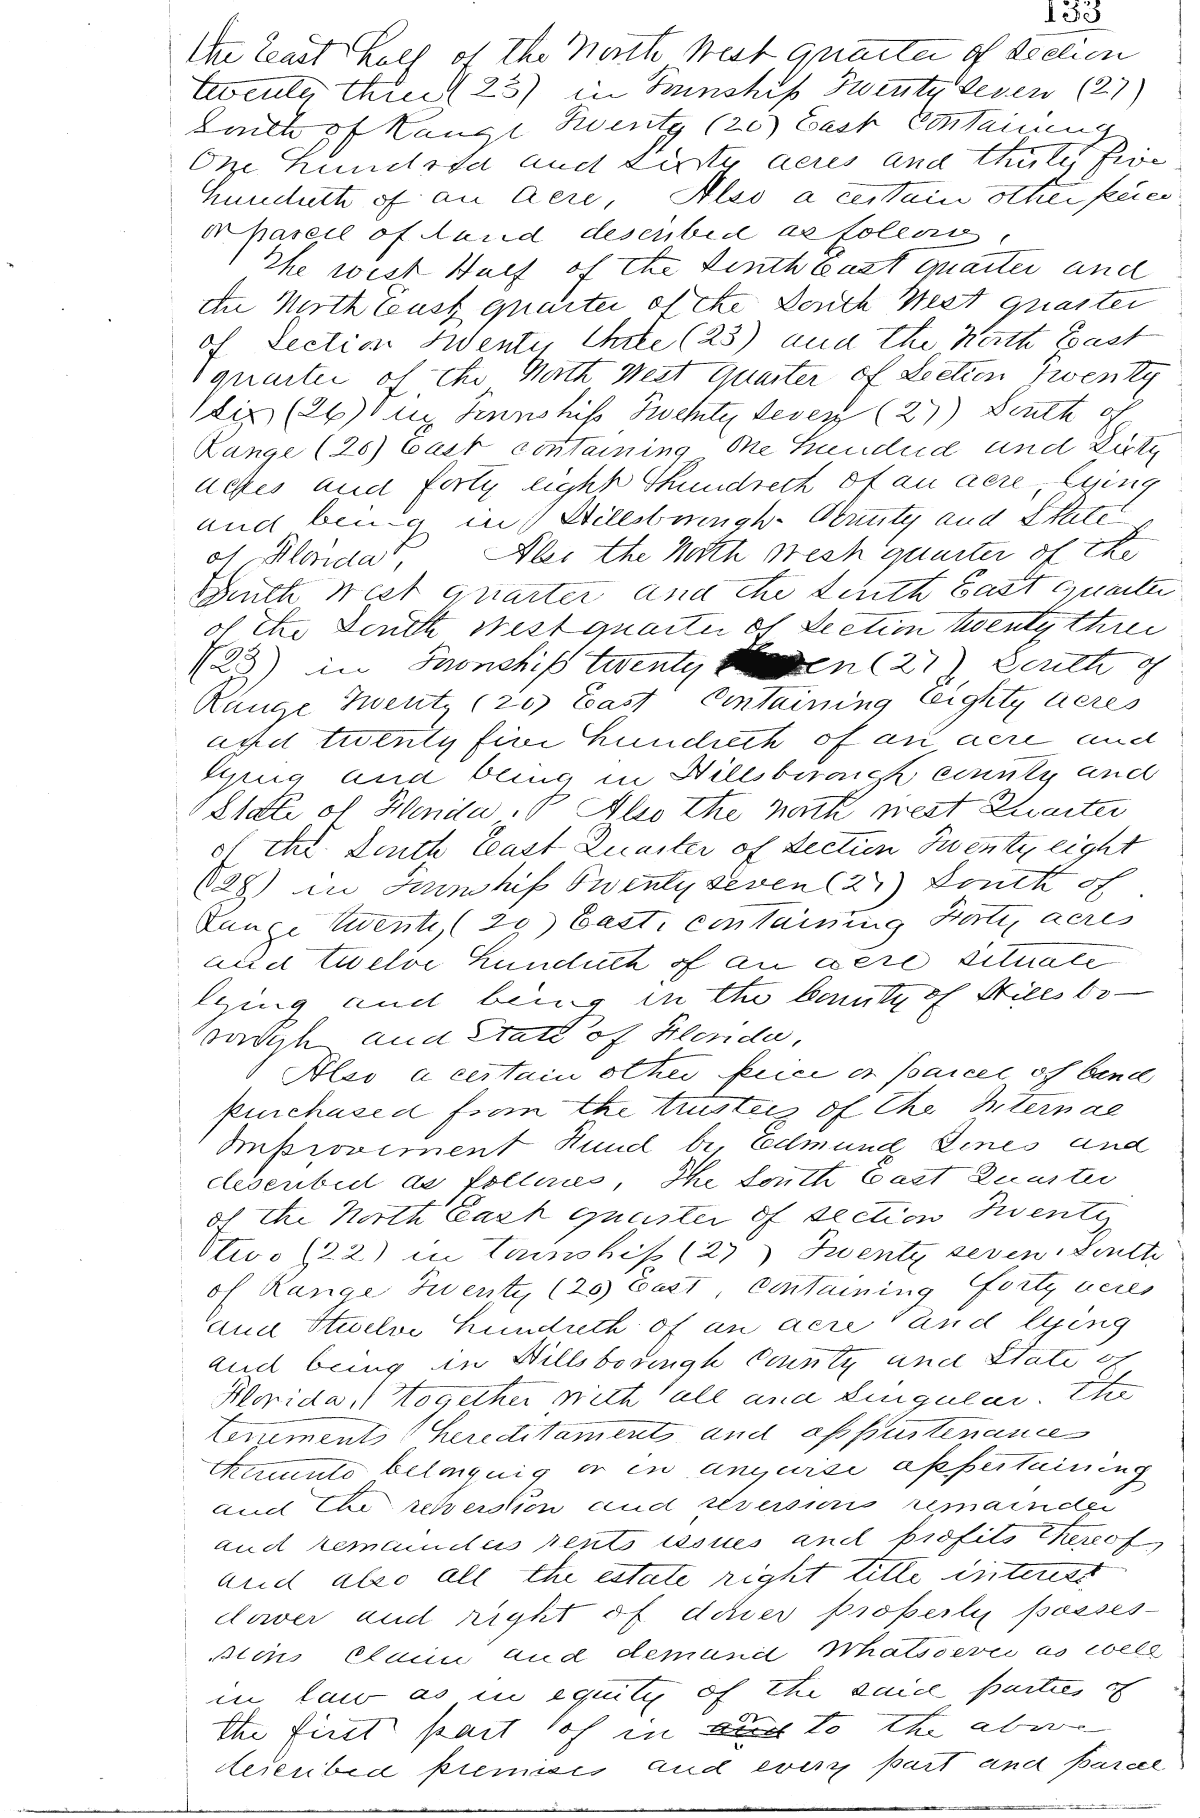 133
the East half of the North West quarter of Section
twenty three (23) in Township Twenty Seven (27)
South of Range Twenty (20) East Containing
One hundred and Sixty acres and thirty five
hundreth of an acre, Also a certain other peice
or parcel of land described as follows,
The west Half of the South East quarter and
the North East quarter of the South West quarter
of Section Twenty three (23) and the North East
quarter of the North West quarter of Section Twenty
Six (26) in Township Twenty Seven (27) South of
Range (20) East containing One hundred and Sixty
acres and forty eight hundreth of an acre, lying
and being in Hillsborough County and State
of Florida, Also the North West quarter of the
South West quarter and the South East quarter
of the South West quarter of Section twenty three
(23) in Township twenty en (27) South of
Range Twenty (20) East Containing Eighty acres
and twenty five hundreth of an acre and
lying and being in Hillsborough county and
State of Florida. Also the North West Quarter
of the South East Quarter of Section Twenty eight
(28) in Township Twenty seven (27) South of
Range twenty (20) East, containing Forty acres
and twelve hundreth of an acre situate
lying and being in the County of Hillsbo-
rough and State of Florida,
Also a certain other peice or parcel of land
purchased from the trustees of the Internal
Improvement Fund by Edmund Jones and
described as follows, The South East Quarter
of the North East quarter of section Twenty
two (22) in township (27) Twenty seven South
of Range Twenty (20) East, containing forty acres
and twelve hundreth of an acre and lying
and being in Hillsborough County and State of
Florida, Together with all and Singular. the
tenements hereditaments and appurtenances
thereunto belonging or in anywise appertaining
and the reversion and reversions remainder
and remainders rents issues and profits thereof,
and also all the estate right title interest
dower and right of dower property posses-
sions claim and demand Whatsoever as well
in law as in equity of the said parties of
the first part of in and or to the above
described premises and every part and parcel